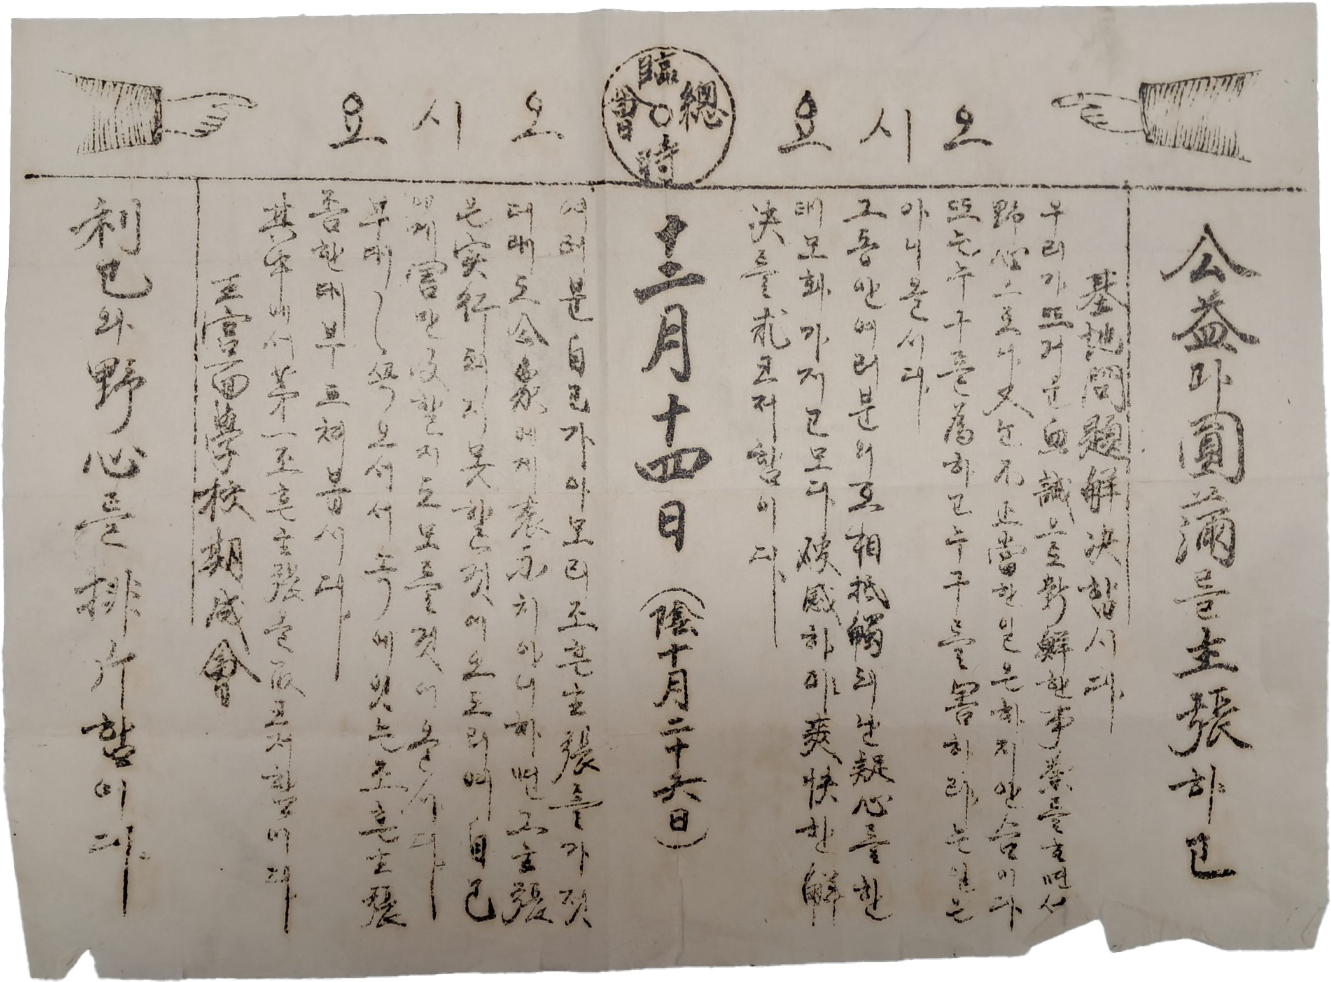 오시요
臨時總會
오시요
公益과圓滿을主張하고
基地問題解決합시다
우리가뜨거운血誠으로新鮮한事業을하면서
野心으로나又는不正當한일은하지안슴이다
또는누구를爲하고누구를害하랴는일은
아니올시다
그동안여러분의로相抵觸되난疑心을한
태모화가지고모다破惑하야爽快한解
決을求코저함이다
十二月十四日(陰十月二十六日)
여러분自己가아모리조흔主張을가젓
대래도公衆에게表示치아니하면그主張
은實行되지못할것이오도리여自己
의게害만及할지도모를것이올시다
부대〱오서서속에잇는조흔主張
좀한대부트처봅시다
其中에서第一조흔主張을取코저함이다
王宮面學校期成會
利己와野心을排斥함이다